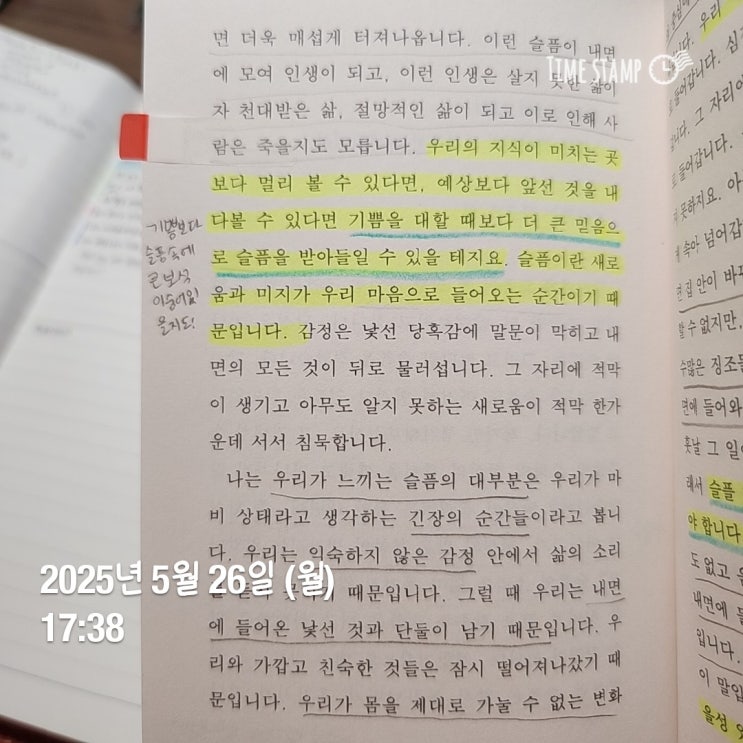 면 더욱 매섭게 터져나옵니다. 이런 슬픔이 내면
에 모여 인생이 되고, 이런 인생은 살지 못한 삶이
자 천대받은 삶, 절망적인 삶이 되고 이로 인해 사
람은 죽을지도 모릅니다. 우리의 지식이 미치는 곳
보다 멀리 볼 수 있다면, 예상보다 앞선 것을 내
다볼 수 있다면 기쁨을 대할 때보다 더 큰 믿음으
로 슬픔을 받아들일 수 있을 테지요. 슬픔이란 새로
움과 미지가 우리 마음으로 들어오는 순간이기 때
문입니다. 감정은 낯선 당혹감에 말문이 막히고 내
면의 모든 것이 뒤로 물러섭니다. 그 자리에 적막
이 생기고 아무도 알지 못하는 새로움이 적막 한가
운데 서서 침묵합니다.
나는 우리가 느끼는 슬픔의 대부분은 우리가 마
비 상태라고 생각하는 긴장의 순간들이라고 봅니
다. 우리는 익숙하지 않은 감정 안에서 삶의 소리
때문입니다. 그럴 때 우리는 내면
에 들어온 낯선 것과 단둘이 남기 때문입니다. 우
리와 가깝고 친숙한 것들은 잠시 떨어져나갔기 때
문입니다. 우리가 몸을 제대로 가눌 수 없는 변화
기쁨보다
슬픔속에
큰 보석
이 숨어있
을지도!
TIME STAMP
2025년 5월 26일 (월)
17:38
우리
들어갑니다.
그 자리에
들어갑니다.
못하지요. 아
넘어갑
집 안이 바뀌
할 수 없지만,
수많은 징조들
면에 들어와
훗날 그 일이
래서 슬플
야 합니다
도 없고
내면에
입니다.
이 말입
올성